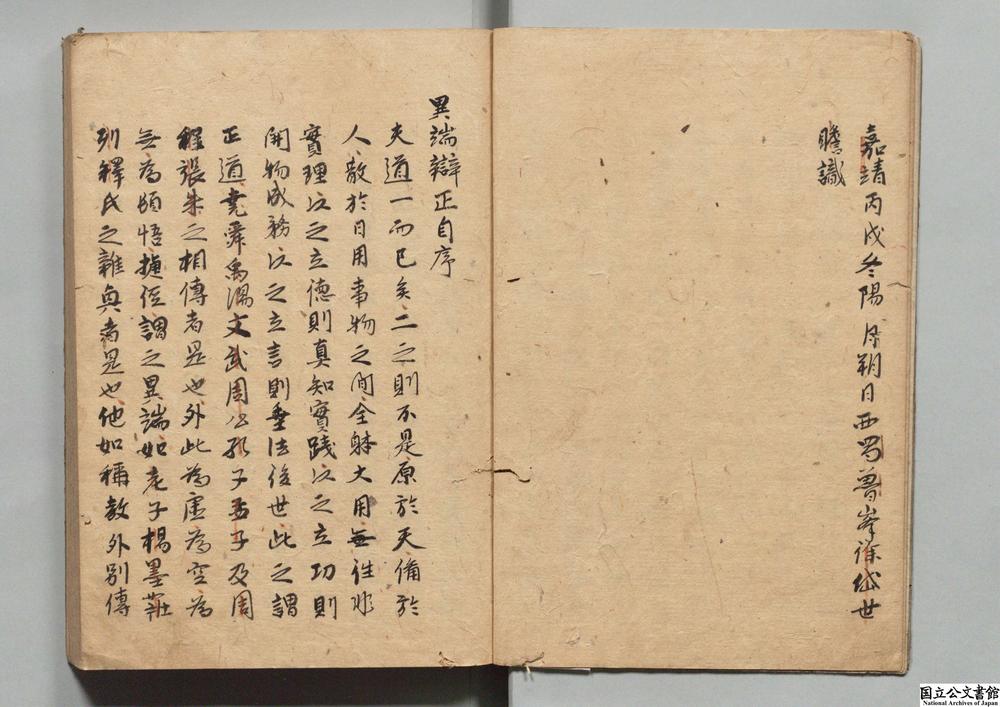 嘉靖丙戌冬陽月朔日西蜀魯峯徐岱世
瞻識
異端辯正自序
夫道一而已矣二之則不是原於天備於
人散於日用事物之間全體大用無往非
實理以之立德則真知實踐以之立功則
開物成務以之立言則垂法後世此之謂
正道堯舜禹湯文武周公孔子孟子及周
程張朱之相傳者是也外此為虛為空為
無為頓悟捷徑謂之異端如老子楊墨莊
列釋氏之雜真者是也他如稱教外別傳
国立公文書館
National Archives of Japan